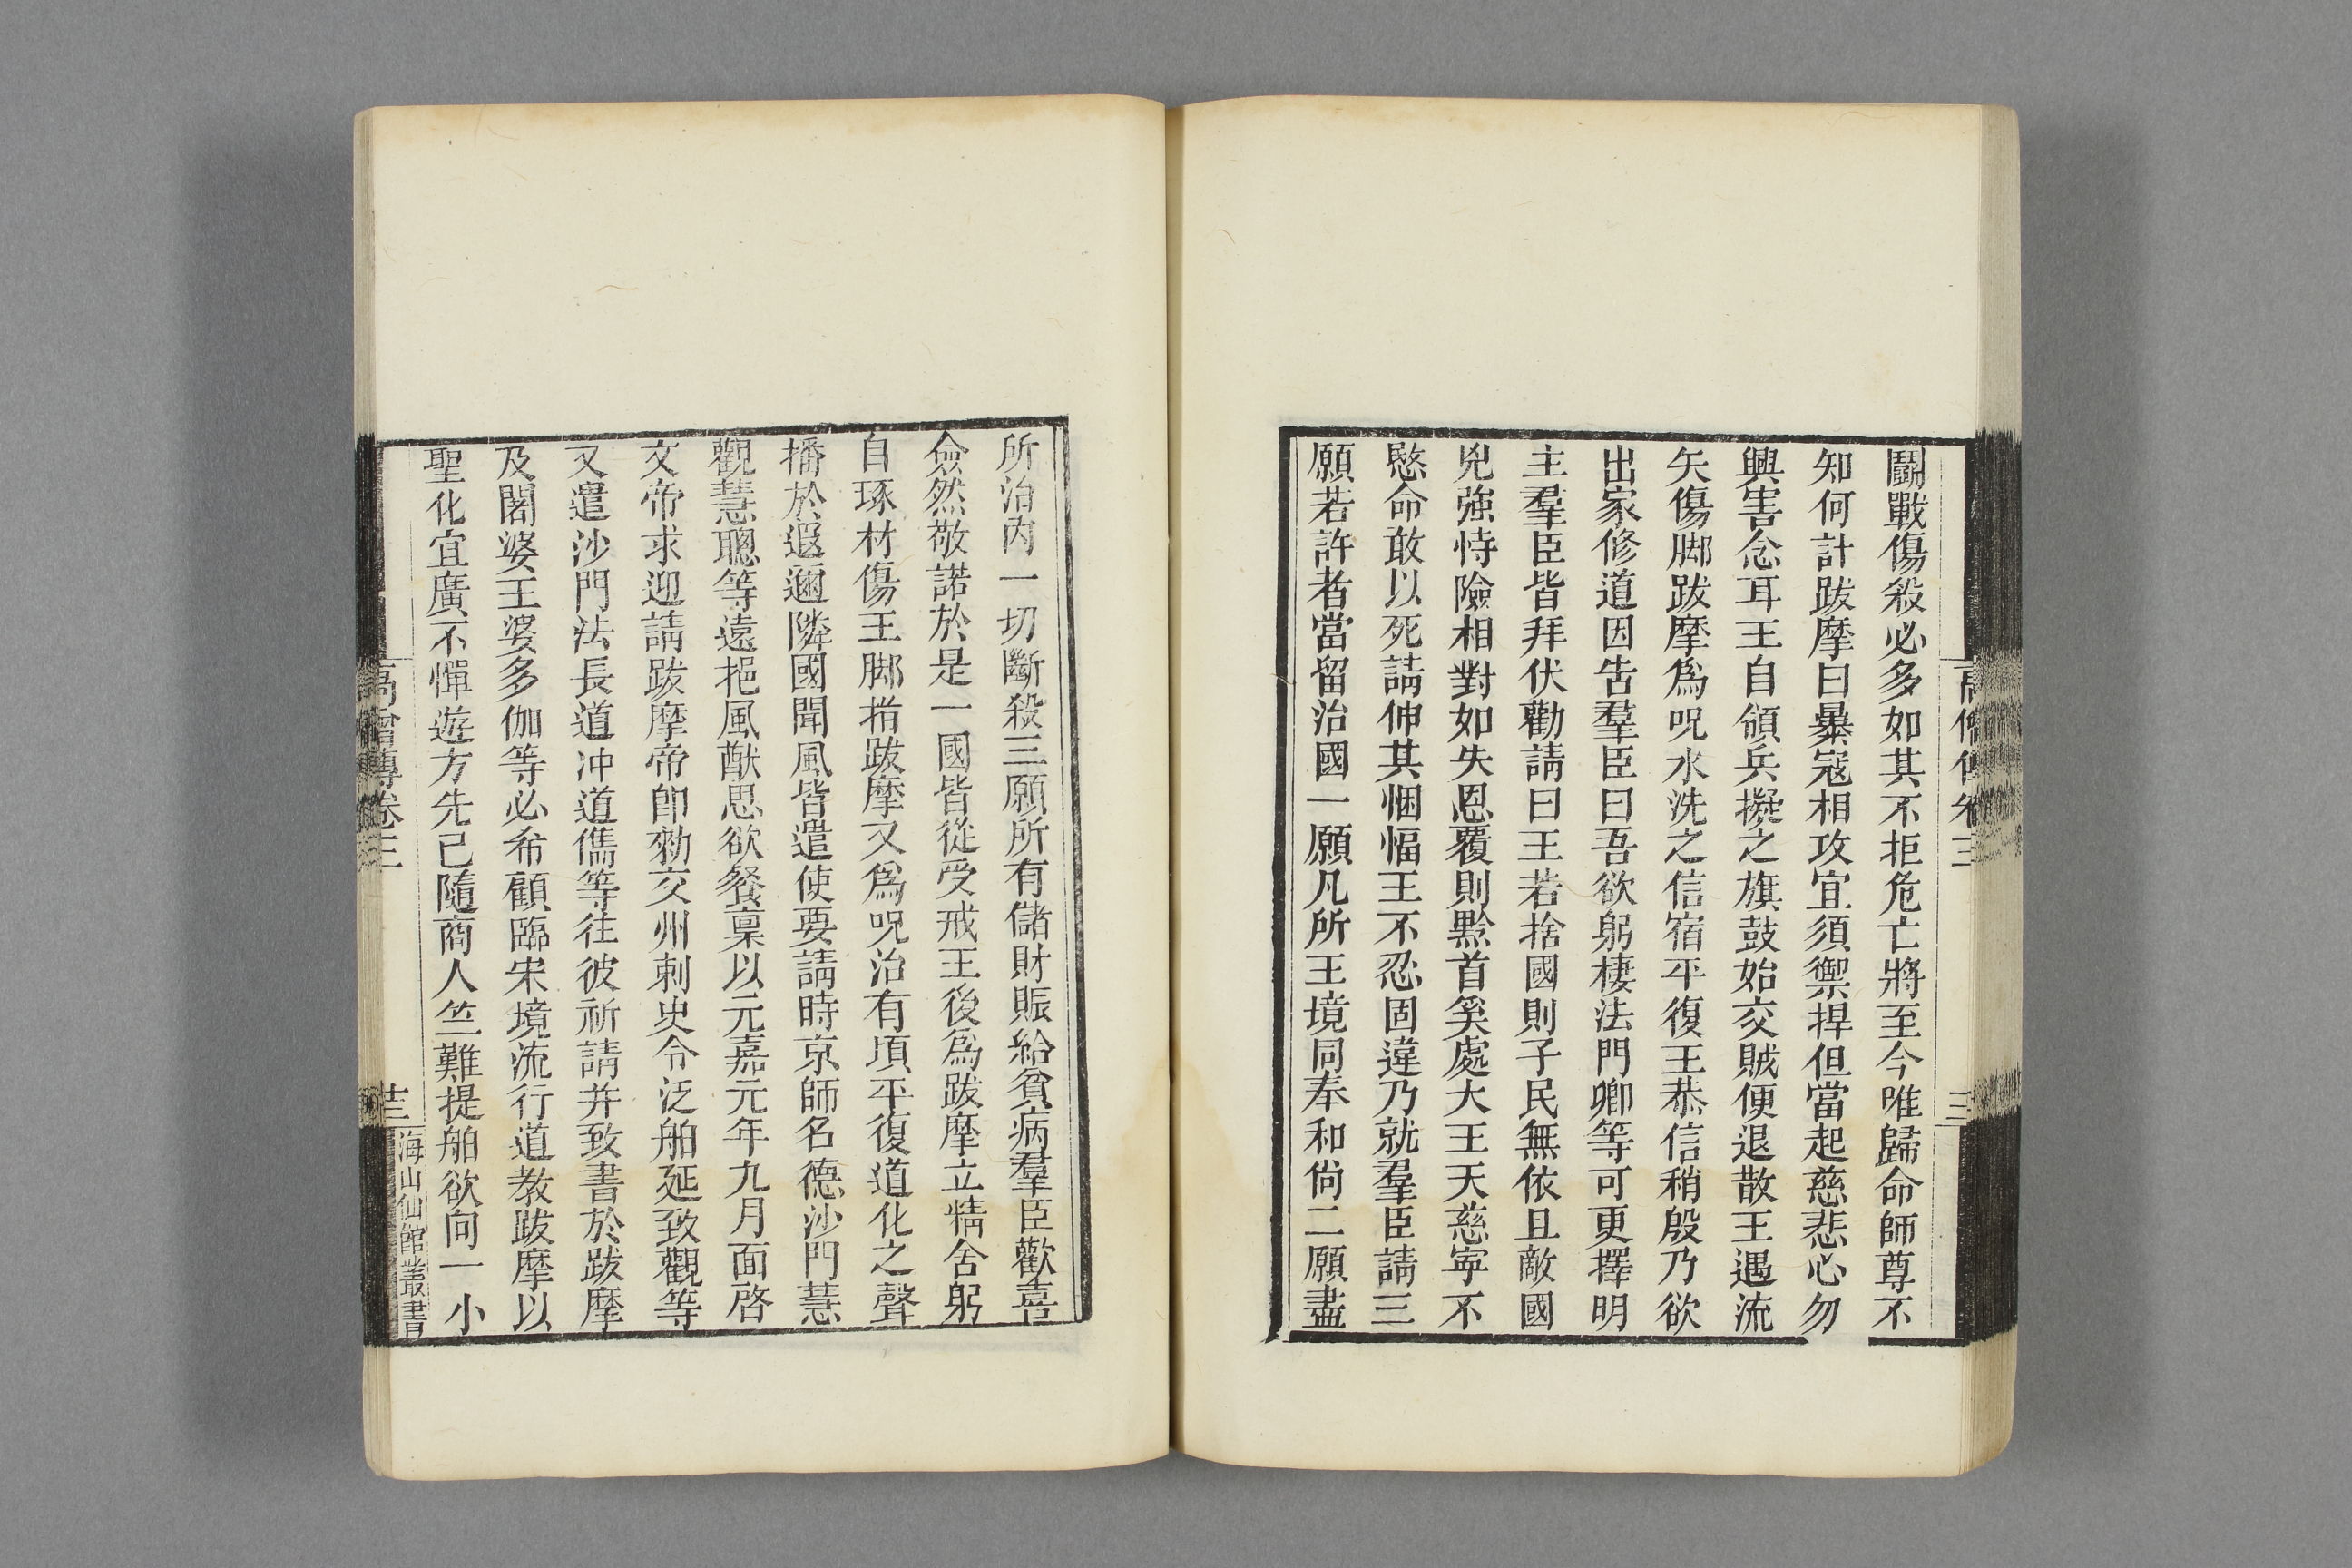 鬭戰傷殺必多如其不拒危亡將至今唯歸命師尊不
知何計跋摩曰暴寇相攻宜須禦捍但當起慈悲心勿
興害念耳王自領兵擬之旗鼓始交賊便退散王遇流
矢傷脚跋摩爲呪水洗之信宿平復王恭信稍殷乃欲
出家修道因吿羣臣曰吾欲躬棲法門卿等可更擇明
主羣臣皆拜伏勸請曰王若捨國則子民無依且敵國
兇強恃險相對如失恩覆則黔首奚處大王天慈寧不
愍命敢以死請伸其悃愊王不忍固違乃就羣臣請三
願若許者當留治國一願凡所王境同奉和尙二願盡
所治内一切斷殺三願所有儲財賑給貧病羣臣歡喜
僉然敬諾於是一國皆從受戒王後爲跋摩立精舍躬
自琢材傷王脚指跋摩又爲呪治有頃平復道化之聲
播於遐邇隣國聞風皆遣使要請時京師名德沙門慧
觀慧聰等遠挹風猷思欲餐稟以元嘉元年九月面啓
文帝求迎請跋摩帝卽勑交州刺史令泛舶延致觀等
又遣沙門法長道冲道儁等往彼祈請并致書於跋摩
及闍婆王婆多伽等必希顧臨宋境流行道教跋摩以
聖化宜廣不憚遊方先已隨商人竺難提舶欲向一小
高僧傳卷三
海山仙館叢書